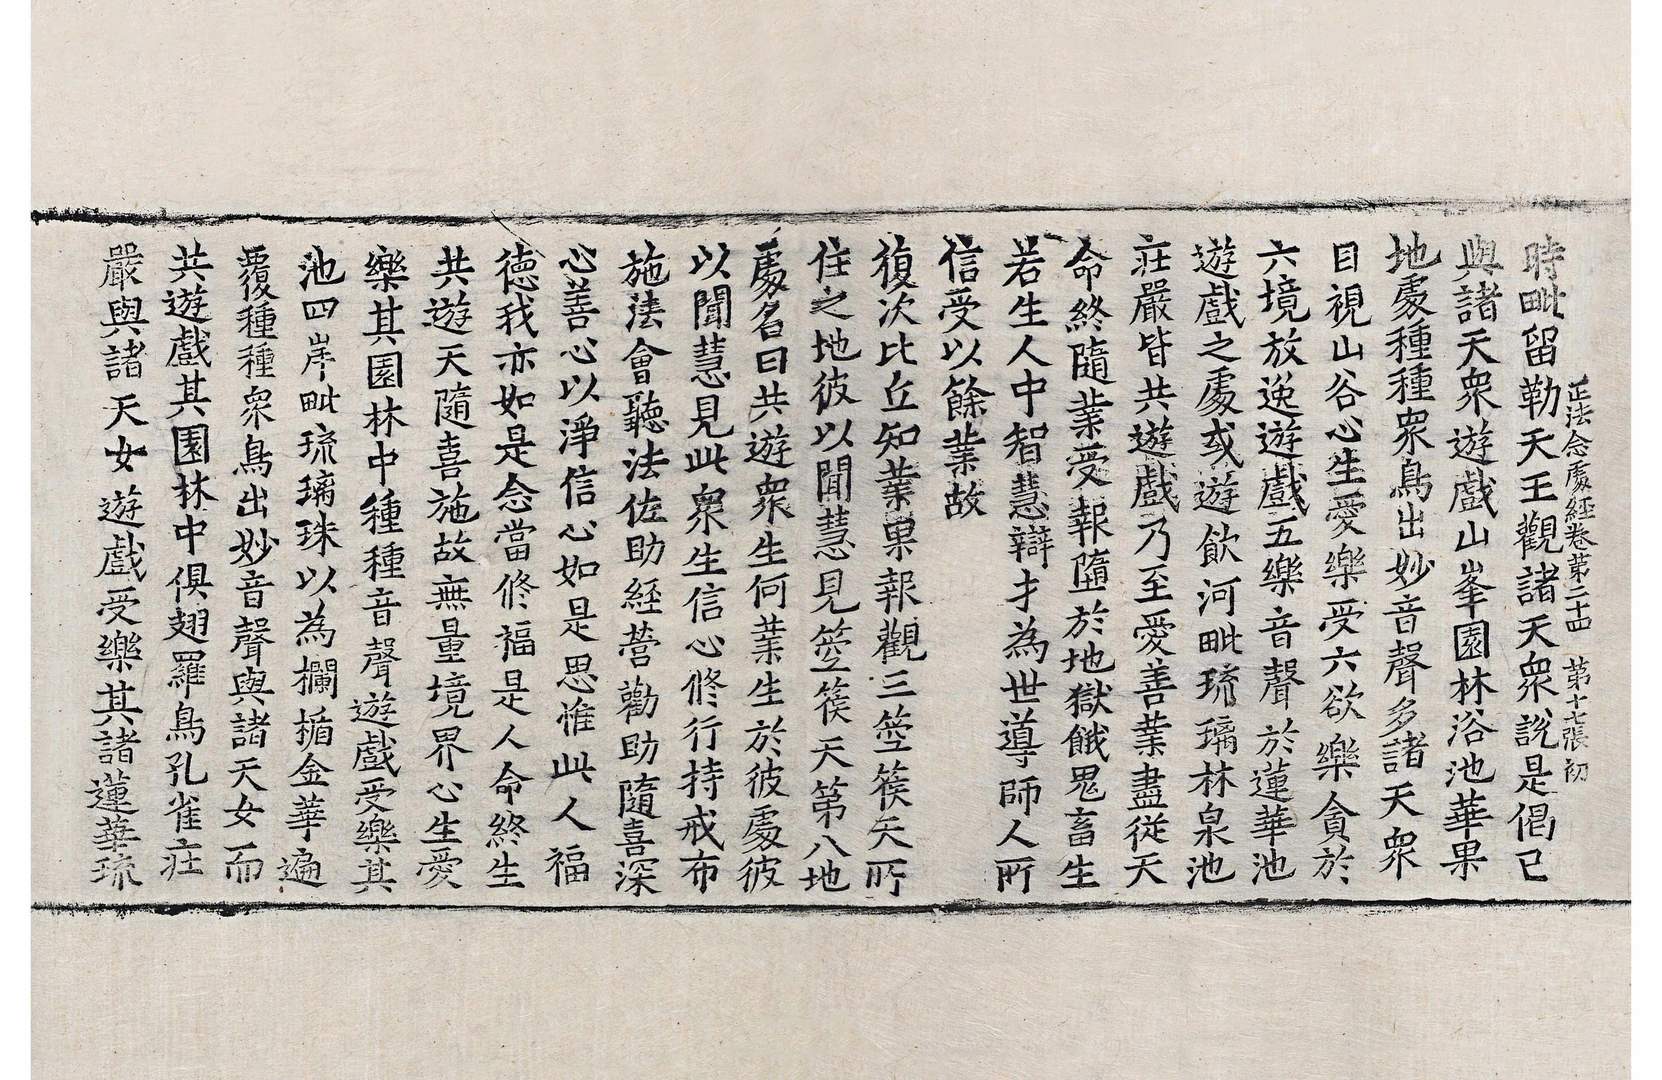 正法念處經卷第二十四　第十七張　初
時毗留勒天王觀諸天眾說是偈已
與諸天眾遊戲山峯園林浴池華果
地處種種眾鳥出妙音聲多諸天眾
目視山谷心生愛樂受六欲樂貪於
六境放逸遊戲五樂音聲於蓮華池
遊戲之處或遊飲河毗琉璃林泉池
莊嚴皆共遊戲乃至愛善業盡從天
命終隨業受報墮於地獄餓鬼畜生
若生人中智慧辯才為世導師人所
信受以餘業故
復次比丘知業果報觀三箜篌天所
住之地彼以聞慧見箜篌天第八地
處名曰共遊眾生何業生於彼處彼
以聞慧見此眾生信心修行持戒布
施法會聽法佐助經營勸助隨喜深
心善心以淨信心如是思惟此人福
德我亦如是念當修福是人命終生
共遊天隨喜施故無量境界心生愛
樂其園林中種種音聲遊戲受樂其
池四岸毗琉璃珠以為欄楯金華遍
覆種種眾鳥出妙音聲與諸天女而
共遊戲其園林中俱翅羅鳥孔雀莊
嚴與諸天女遊戲受樂其諸蓮華琉